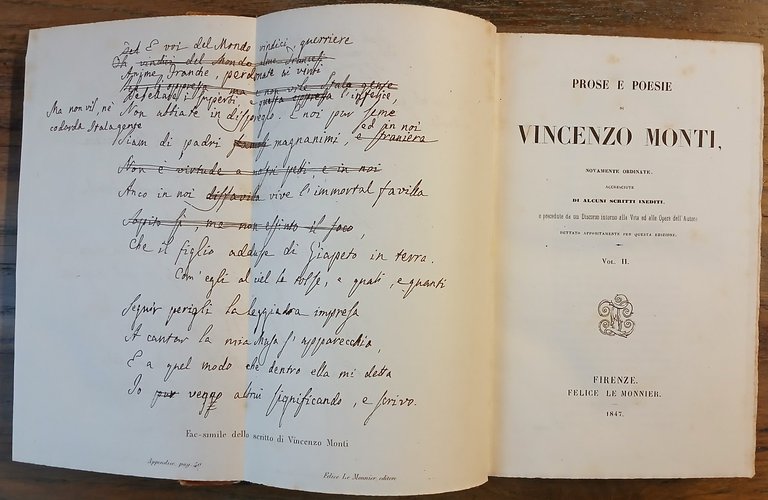 Deh E voi del Mondo vindici, guerriere
vindici del Mondo alme
Anime franche, perdonate ai vinti
ma non vile Itala gente
Debellate i superbi, e questa oppressa l'infelice,
Ma non vil, nè
codarda Itala gente
Non abbiate in dispregio. E noi pur seme
ed in noi
Siam di padri magnanimi, e straniera
Non è virtude a nostri petti, e in noi
Anco in noi diffavilla vive l'immortal favilla
Sopito sì, ma non estinto il foco,
Che il figlio addusse di Giapeto in terra.
Com' egli al ciel la tolse, e quali, e quanti
Seguir perigli la leggiadra impresa
A cantar la mia Musa s' apparecchia,
E a quel modo che dentro ella mi detta
Io pur vegno altrui significando, e scrivo.
Fac-simile dello scritto di Vincenzo Monti
Appendice, pag. 40
Felice Le Monnier editore
PROSE E POESIE
DI
VINCENZO MONTI,
NOVAMENTE ORDINATE,
ACCRESCIUTE
DI ALCUNI SCRITTI INEDITI,
e precedute da un Discorso intorno alla Vita ed alle Opere dell'Autore
DETTATO APPOSITAMENTE PER QUESTA EDIZIONE.
VOL. II.
FIRENZE.
FELICE LE MONNIER.
1847.